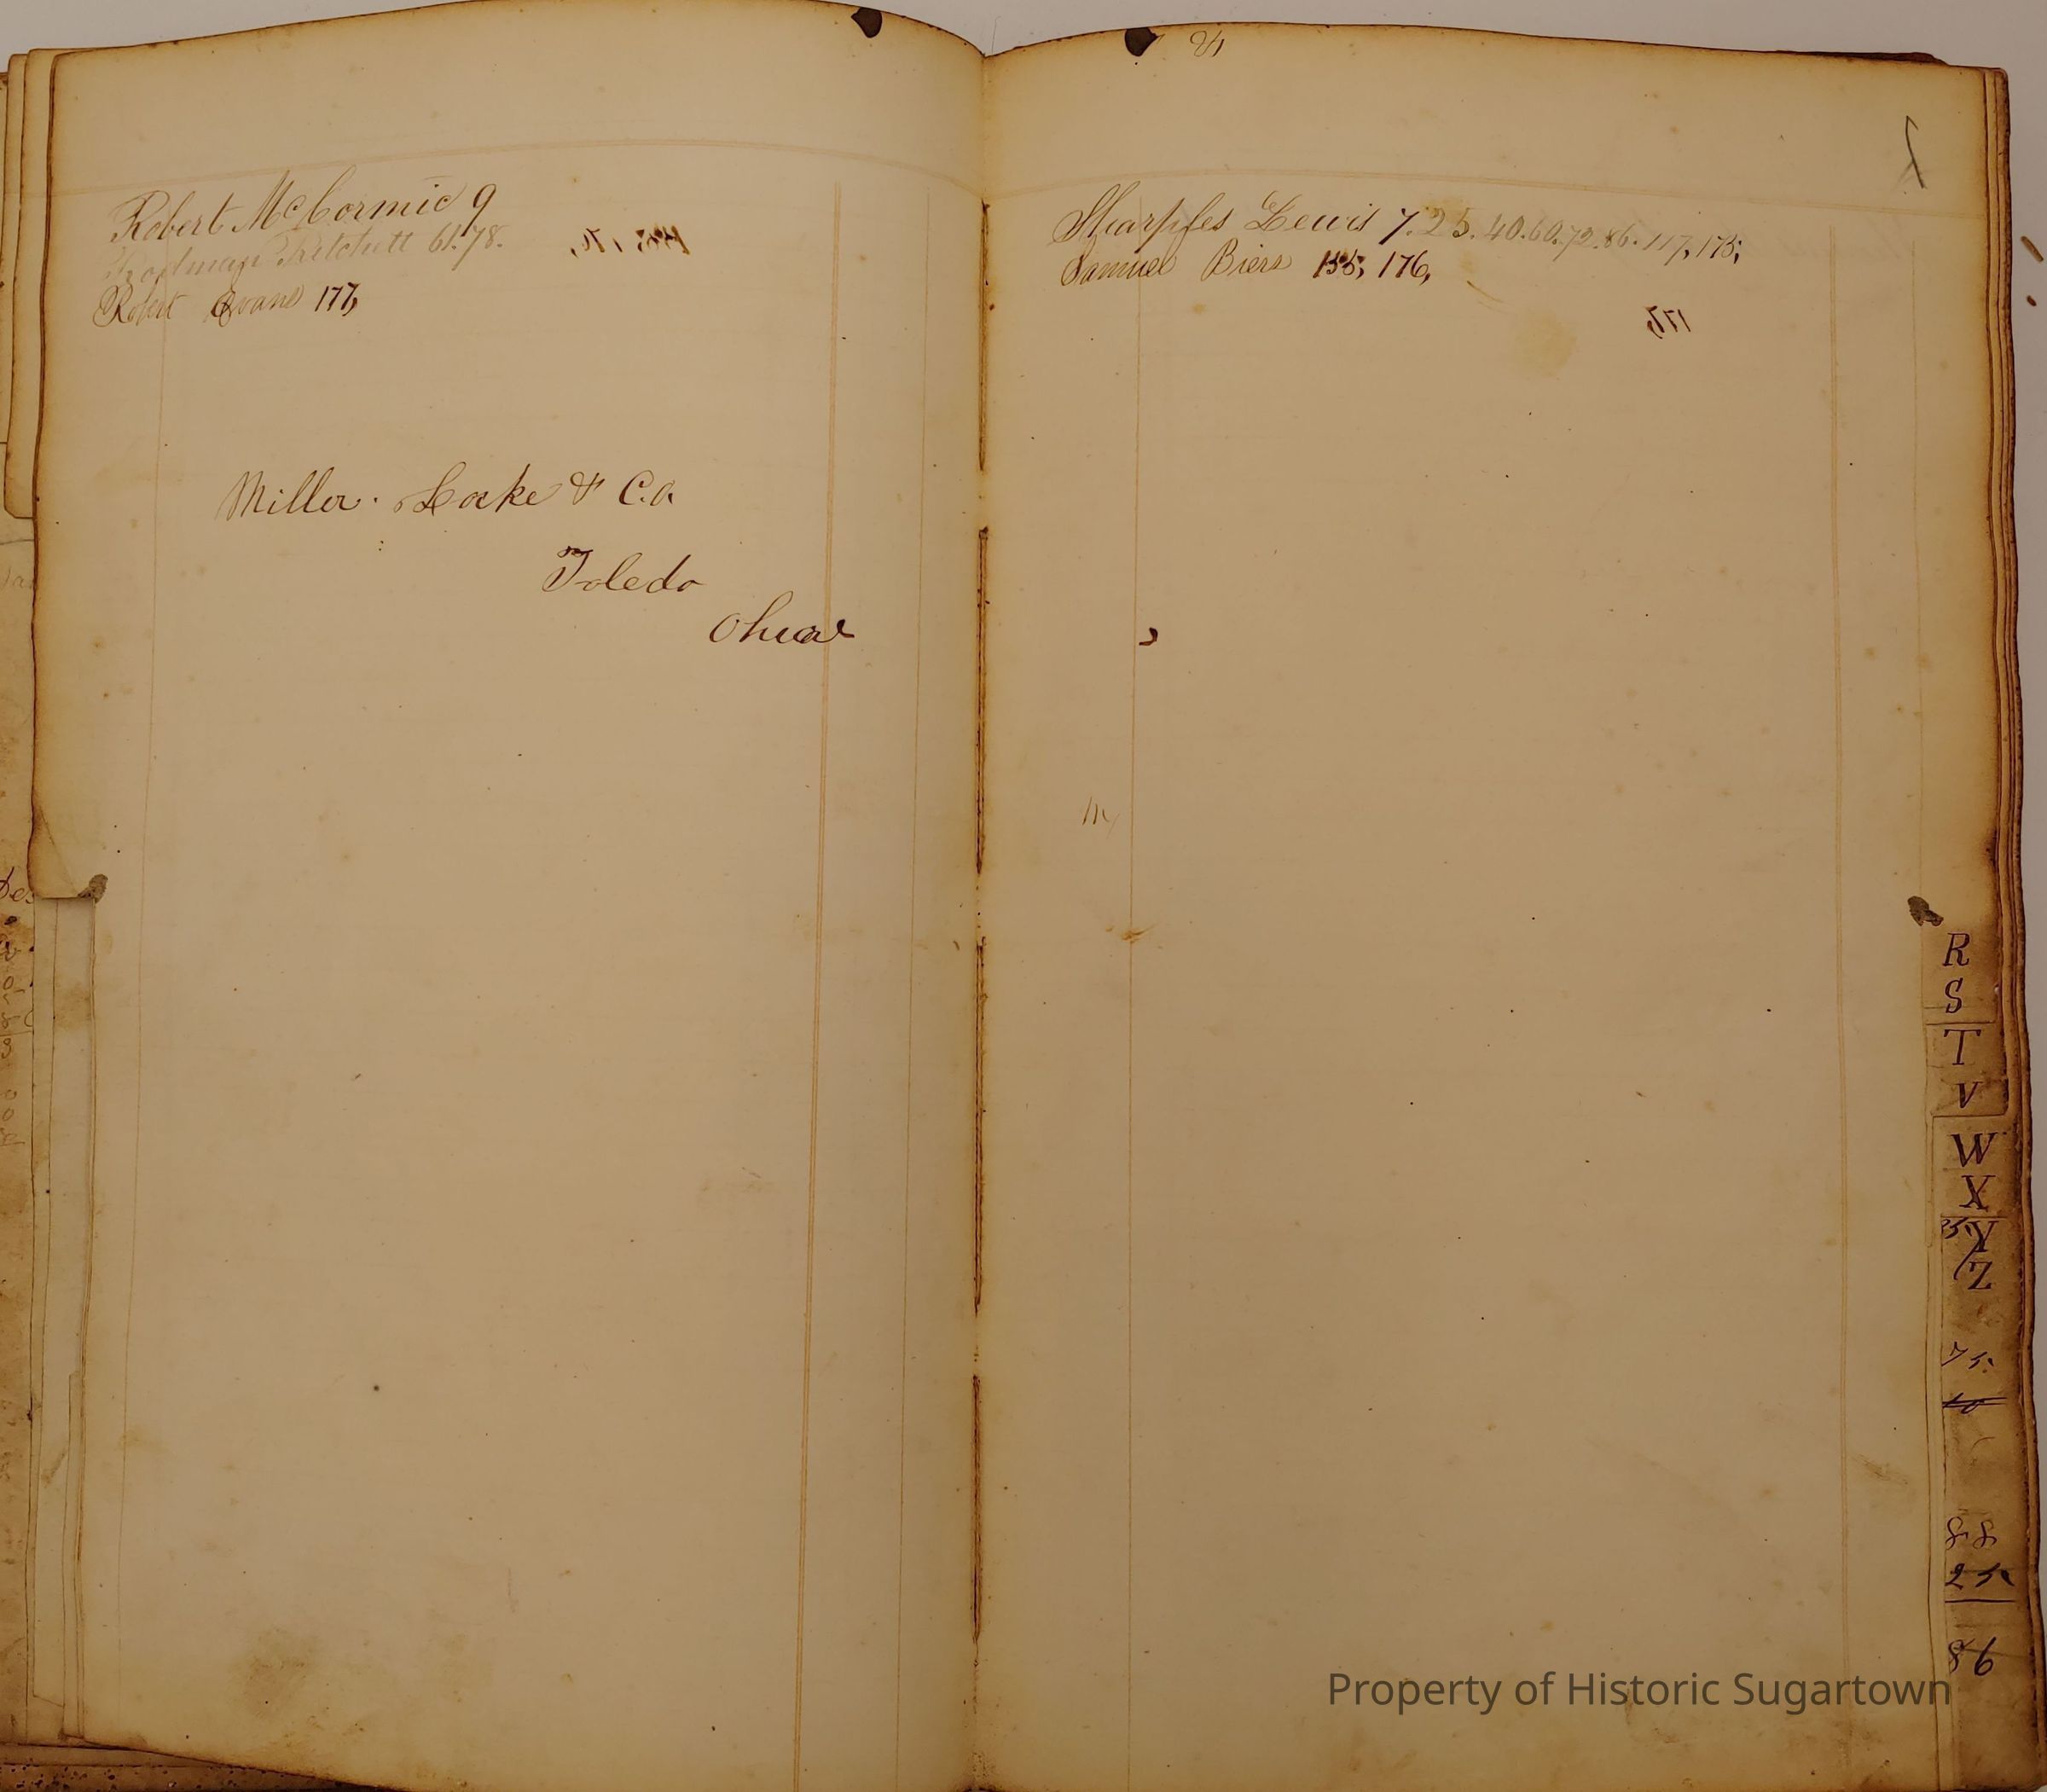 Robert McCormic 9
Pritchett 61.78.
Robert Evans 177,
Miller. Locke & C.o.
Toledo
Sharples Lewis 7.25.40.60.72.86.117,175;
Samuel Biers 155, 176,
R
S
T
V
W
X
Y
Z
75.
10
88
25
86
Property of Historic Sugartown